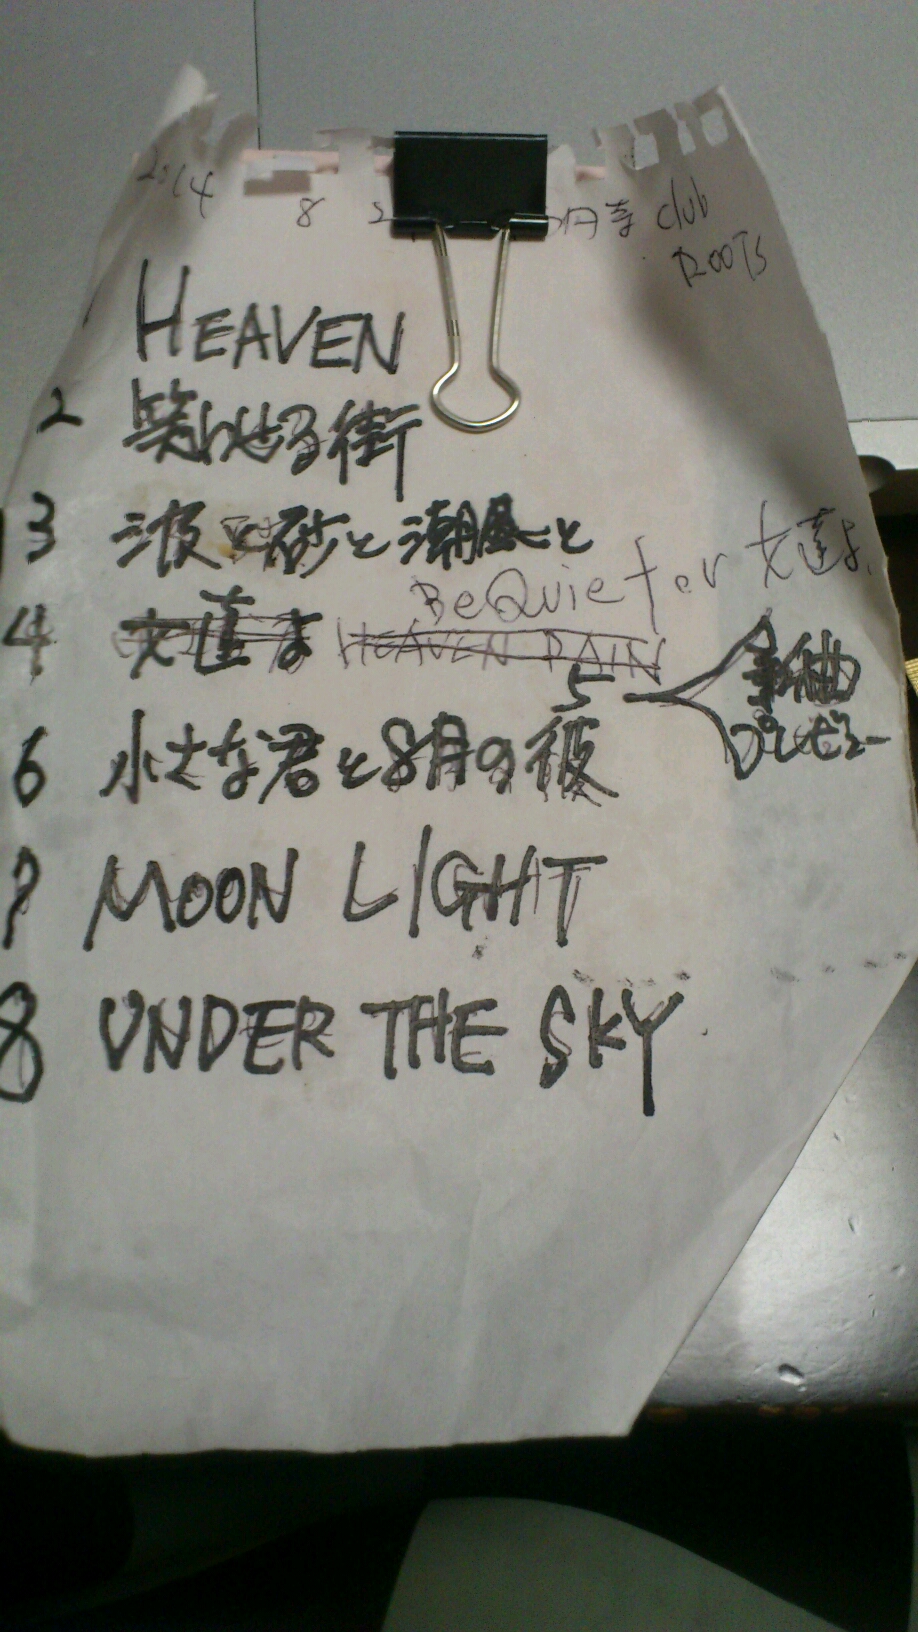 2014 8 2 円寺 club
ROOTS
1 HEAVEN
2 笑わせる街
3 波と砂と潮風と
Be Quiet or 友達よ
4 HEAVEN RAIN
5 新曲
プレビュー
6 小さな君と8月の彼
7 MOON LIGHT
8 UNDER THE SKY